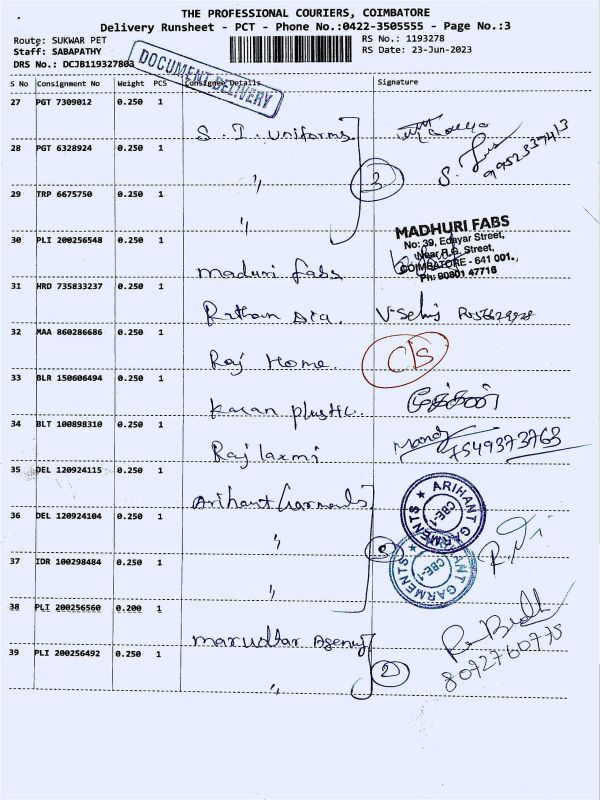 THE PROFESSIONAL COURIERS, COIMBATORE
Delivery Runsheet - PCT - Phone No.:0422-3505555 - Page No.:3
Route: SUKWAR PET
RS No.: 1193278
Staff: SABAPATHY
RS Date: 23-Jun-2023
DRS No.: DCJB119327803
DOCUMENT DELIVERY
S No Consignment No Weight PCS Consignee Details Signature
27 PGT 7309012 0.250 1
S. I. Uniforms
28 PGT 6328924 0.250 1
" 3
9952337413
29 TRP 6675750 0.250 1
"
30 PLI 200256548 0.250 1
maduri fabs
MADHURI FABS
No: 39, Edayar Street,
Near R.G. Street,
COIMBATORE - 641 001.
Ph: 90801 47716
31 HRD 735833237 0.250 1
32 MAA 860286686 0.250 1
Raj Home. C/S
33 BLR 150606494 0.250 1
karan plastic
34 BLT 100898310 0.250 1
Raj laxmi
7549373763
35 DEL 120924115 0.250 1
Arihant Garments
ARIHANT GARMENTS CBE-1
36 DEL 120924104 0.250 1
"
37 IDR 100298484 0.250 1
"
ARIHANT GARMENTS CBE-1
38 PLI 200256560 0.200 1
marudhar Agency
8072760775
39 PLI 200256492 0.250 1
" 2